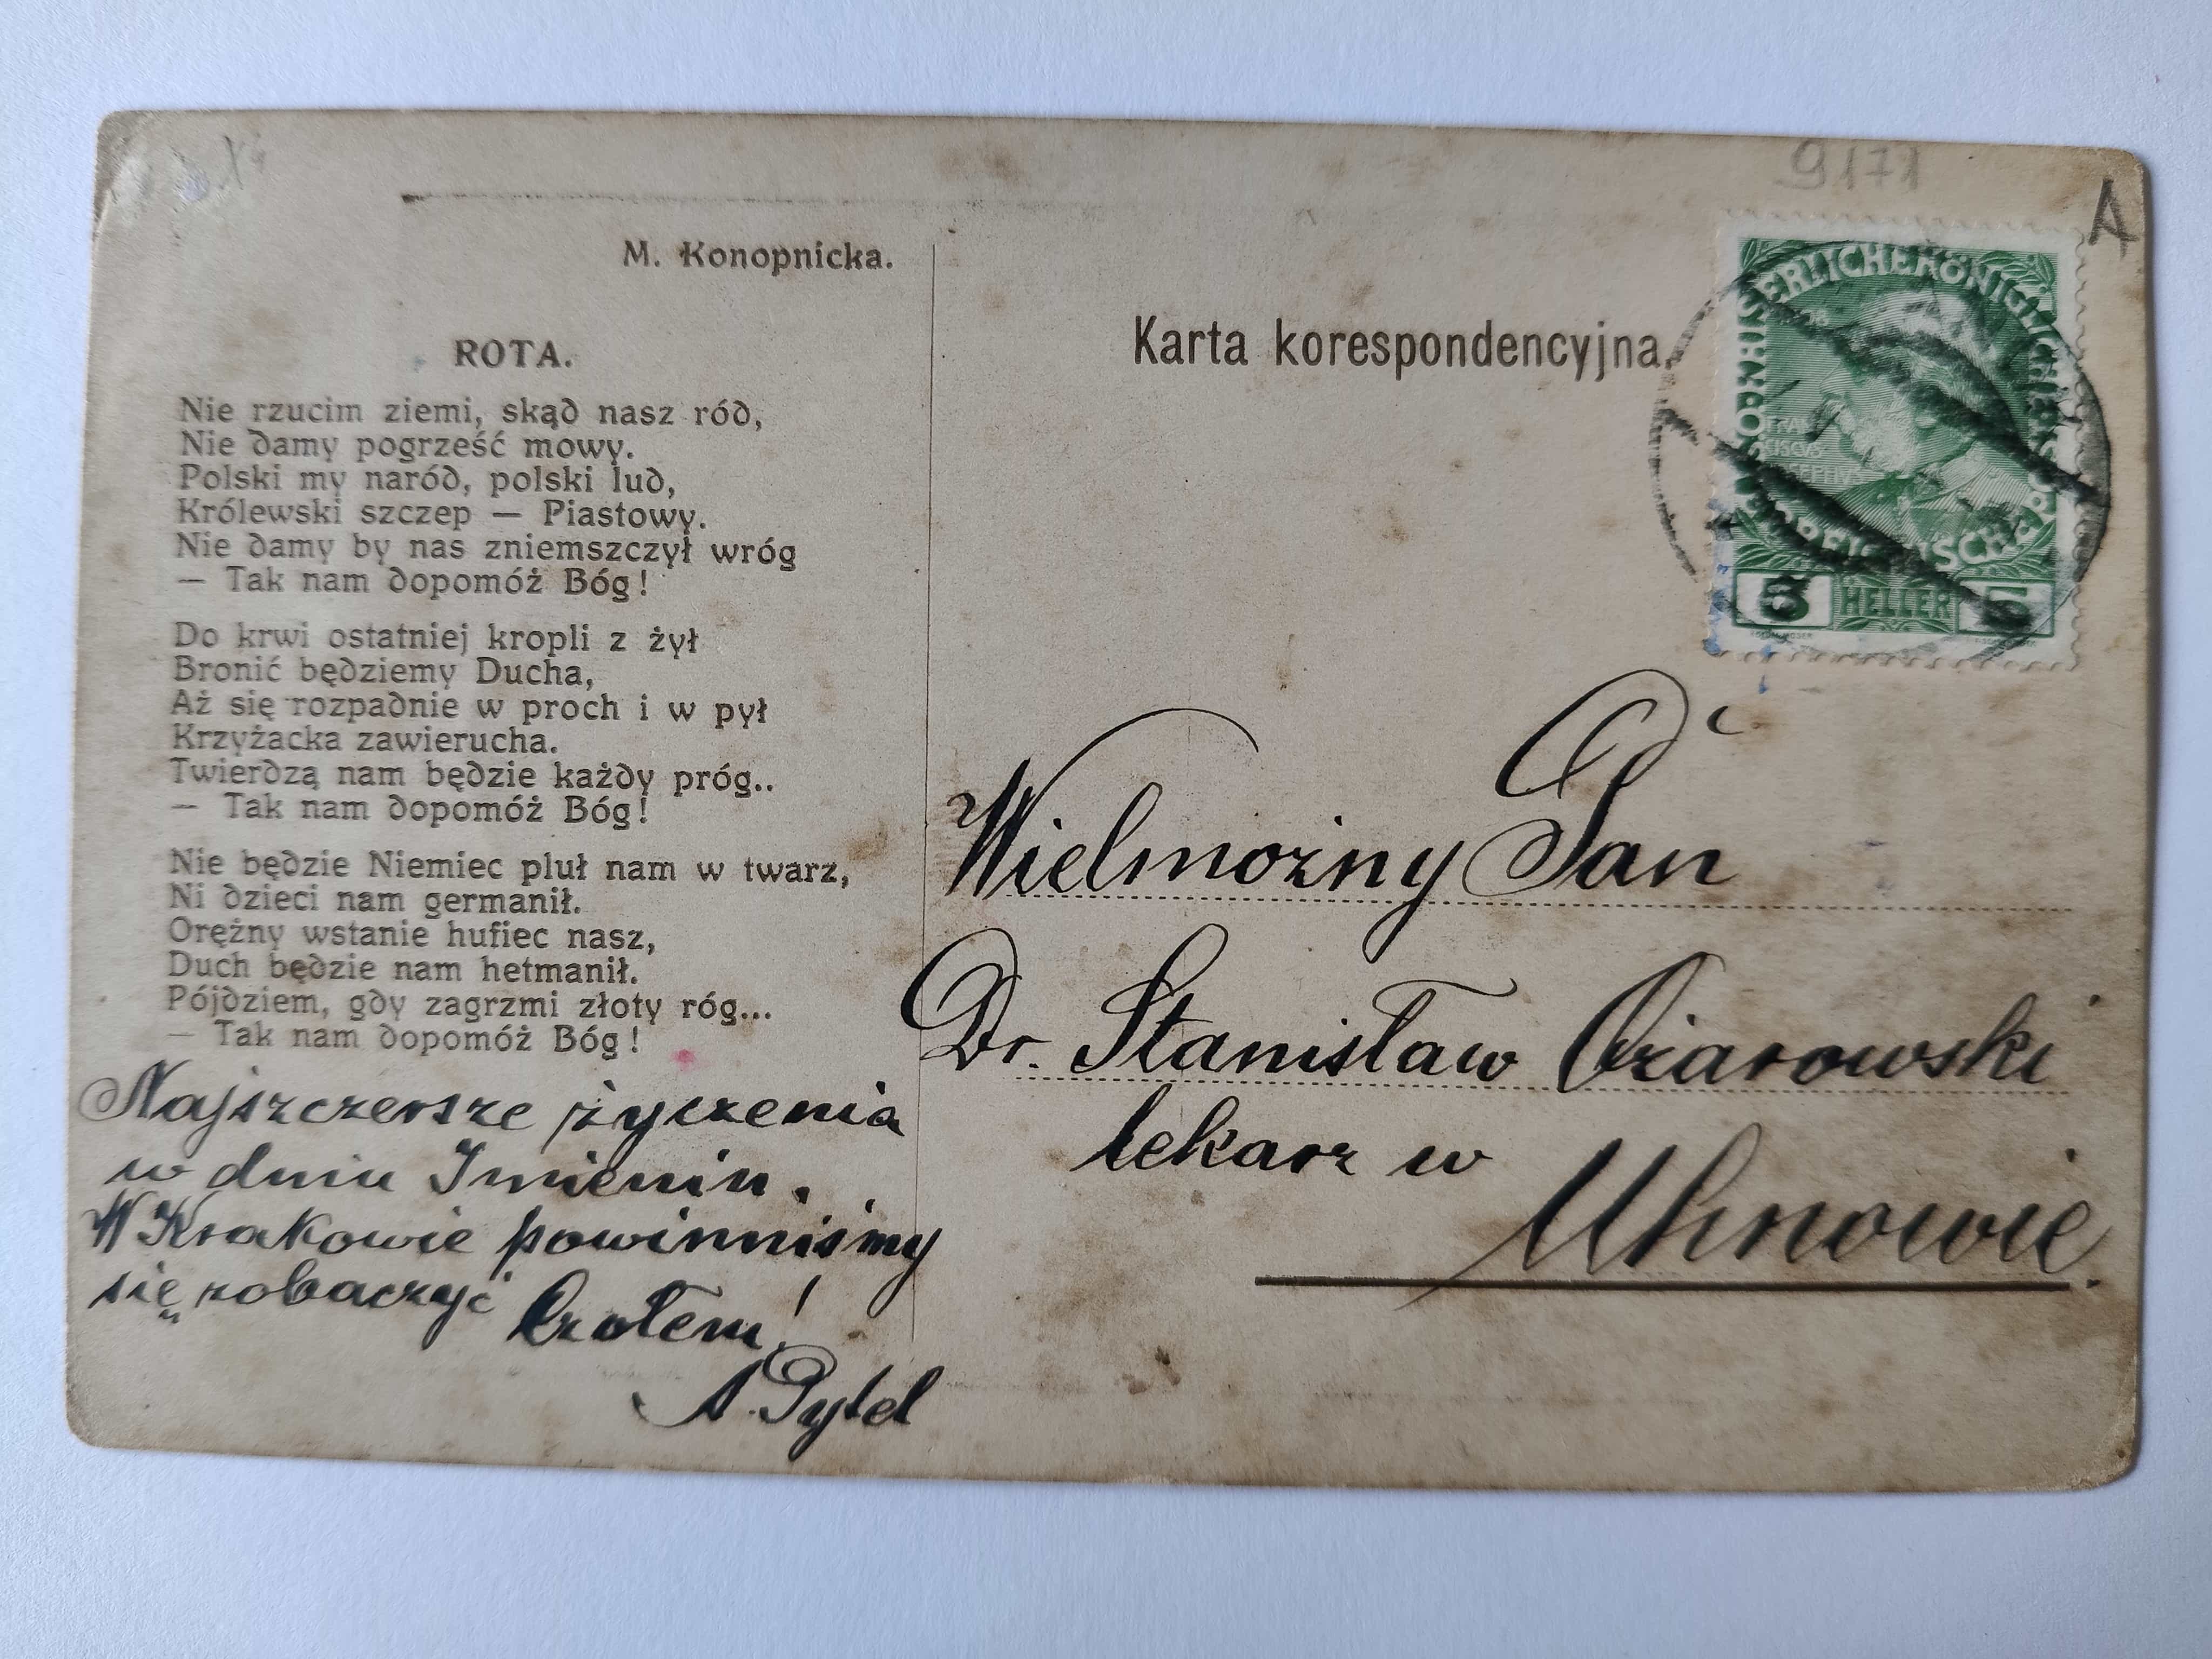 9171
A
M. Konopnicka.
ROTA.
Nie rzucim ziemi, skąd nasz ród,
Nie damy pogrześć mowy.
Polski my naród, polski lud,
Królewski szczep — Piastowy.
Nie damy by nas zniemszczył wróg
— Tak nam dopomóż Bóg!
Do krwi ostatniej kropli z żył
Bronić będziemy Ducha,
Aż się rozpadnie w proch i w pył
Krzyżacka zawierucha.
Twierdzą nam będzie każdy próg..
— Tak nam dopomóż Bóg!
Nie będzie Niemiec pluł nam w twarz,
Ni dzieci nam germanił.
Orężny wstanie hufiec nasz,
Duch będzie nam hetmanił.
Pójdziem, gdy zagrzmi złoty róg...
— Tak nam dopomóż Bóg!
Najszczersze życzenia
w dniu Imienin.
W Krakowie powinniśmy
się zobaczyć
Czołem!
A. Pytel
Karta korespondencyjna.
KAISERLICHE KÖNIGLICHE
5 HELLER 5
Wielmożny Pan
Dr. Stanisław Ożarowski
lekarz w
Uhnowie.